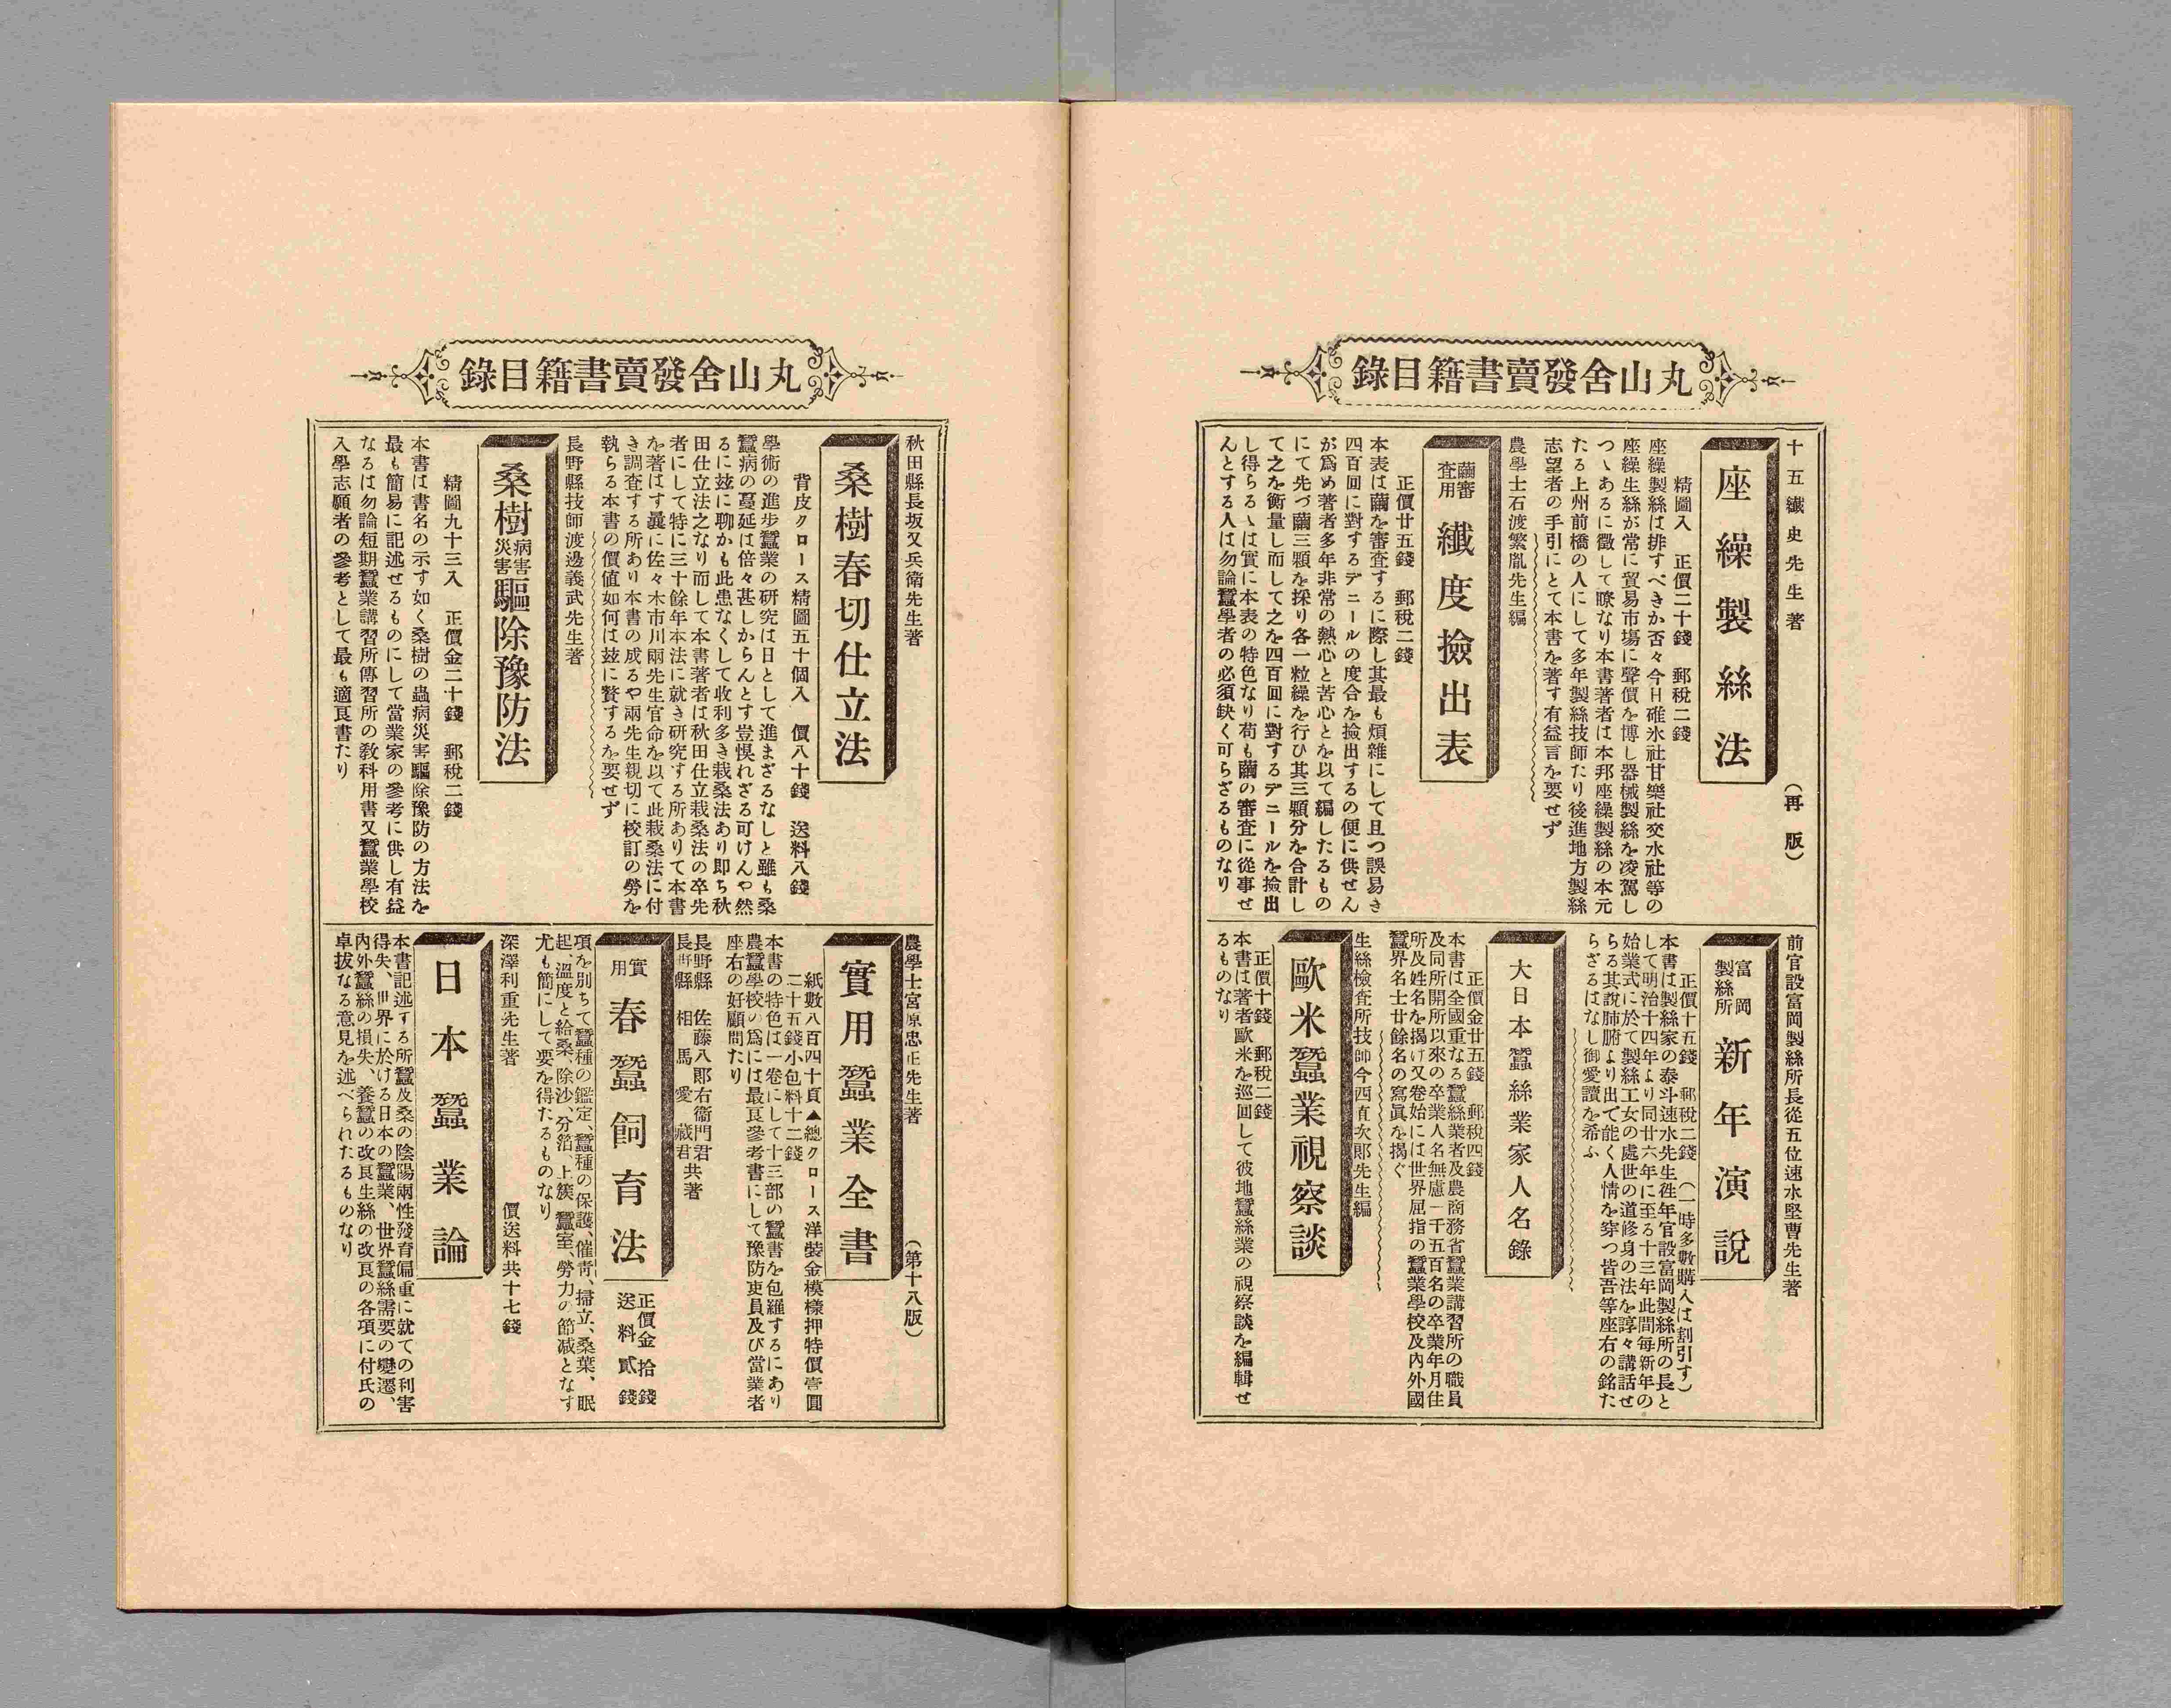 丸山舍發賣書籍目錄
十五纎史先生著
(再版)
座繰製絲法
精圖入 正價二十錢 郵稅二錢
座繰製絲は排すべきか否々今日碓氷社甘樂社交水社等の
座繰生絲が常に貿易市塲に聲價を博し器械製絲を凌駕し
つゝあるに徵して瞭なり本書著者は本邦座繰製絲の本元
たる上州前橋の人にして多年製絲技師たり後進地方製絲
志望者の手引にとて本書を著す有益言を要せず
農學士石渡繁胤先生編
繭審查用 纎度撿出表
正價廿五錢 郵稅二錢
本表は繭を審査するに際し其最も煩雜にして且つ誤易き
四百回に對するデニールの度合を撿出するの便に供せん
が爲め著者多年非常の熱心と苦心とを以て編したるもの
にて先づ繭三顆を採り各一粒繰を行ひ其三顆分を合計し
て之を衡量し而して之を四百回に對するデニールを撿出
し得らるゝは實に本表の特色なり苟も繭の審査に從事せ
んとする人は勿論蠶學者の必須缺く可らざるものなり
前官設富岡製絲所長從五位速水堅曹先生著
富岡製絲所 新年演說
正價十五錢 郵稅二錢 (一時多數購入は割引す)
本書は製絲家の泰斗速水先生徃年官設富岡製絲所の長と
して明治十四年より同廿六年に至る十三年此間每新年の
始業式に於て製絲工女の處世の道修身の法を諄々講話せ
らる其說肺腑より出て能く人情を穿つ皆吾等座右の銘た
らざるはなし御愛讀を希ふ
大日本蠶絲業家人名錄
正價金廿五錢 郵稅四錢
本書は全國重なる蠶絲業者及農商務省蠶業講習所の職員
及同所開所以來の卒業人名無慮一千五百名の卒業年月住
所及姓名を揭げ又卷始には世界屈指の蠶業學校及內外國
蠶界名士廿餘名の寫眞を揭ぐ
生絲檢查所技師今西直次郎先生編
歐米蠶業視察談
正價十錢 郵稅二錢
本書は著者歐米を巡回して彼地蠶絲業の視察談を編輯せ
るものなり
丸山舍發賣書籍目錄
秋田縣長坂又兵衛先生著
桑樹春切仕立法
背皮クロース精圖五十個入 價八十錢 送料八錢
學術の進步蠶業の研究は日として進まざるなしと雖も桑
蠶病の蔓延は倍々甚しからんとす豈惧れざる可けんや然
るに玆に聊かも此患なくして收利多き栽桑法あり即ち秋
田仕立法之なり而して本書著者は秋田仕立栽桑法の卒先
者にして特に三十餘年本法に就き研究する所ありて本書
を著はす曩に佐々木市川兩先生官命を以て此栽桑法に付
き調査する所あり本書の成るや兩先生親切に校訂の勞を
執らる本書の價値如何は玆に贅するを要せず
長野縣技師渡邊義武先生著
桑樹病害災害驅除豫防法
精圖九十三入 正價金二十錢 郵稅二錢
本書は書名の示す如く桑樹の蟲病災害驅除豫防の方法を
最も簡易に記述せるものにして當業家の參考に供し有益
なるは勿論短期蠶業講習所傳習所の敎科用書又蠶業學校
入學志願者の參考として最も適良書たり
農學士宮原忠正先生著
(第十八版)
實用蠶業全書
紙數八百四十頁▲總クロース洋裝金模樣押特價壹圓
二十五錢小包料十二錢
本書の特色は一卷にして十三部の蠶書を包羅するにあり
農蠶學校の爲には最良參考書にして豫防吏員及び當業者
座右の好顧問たり
長野縣 佐藤八郎右衞門君
長野縣 相馬愛藏君 共著
實用 春蠶飼育法
正價金拾錢
送料貳錢
項を別ちて蠶種の鑑定、蠶種の保護、催靑、掃立、桑葉、眠
起、溫度と給桑、除沙、分箔、上簇、蠶室、勞力の節減となす
尤も簡にして要を得たるものなり
深澤利重先生著
價送料共十七錢
日本蠶業論
本書記述する所蠶及桑の陰陽兩性發育偏重に就ての利害
得失、世界に於ける日本の蠶業、世界蠶絲需要の變遷、
內外蠶絲の損失、養蠶の改良生絲の改良の各項に付氏の
卓拔なる意見を述べられたるものなり